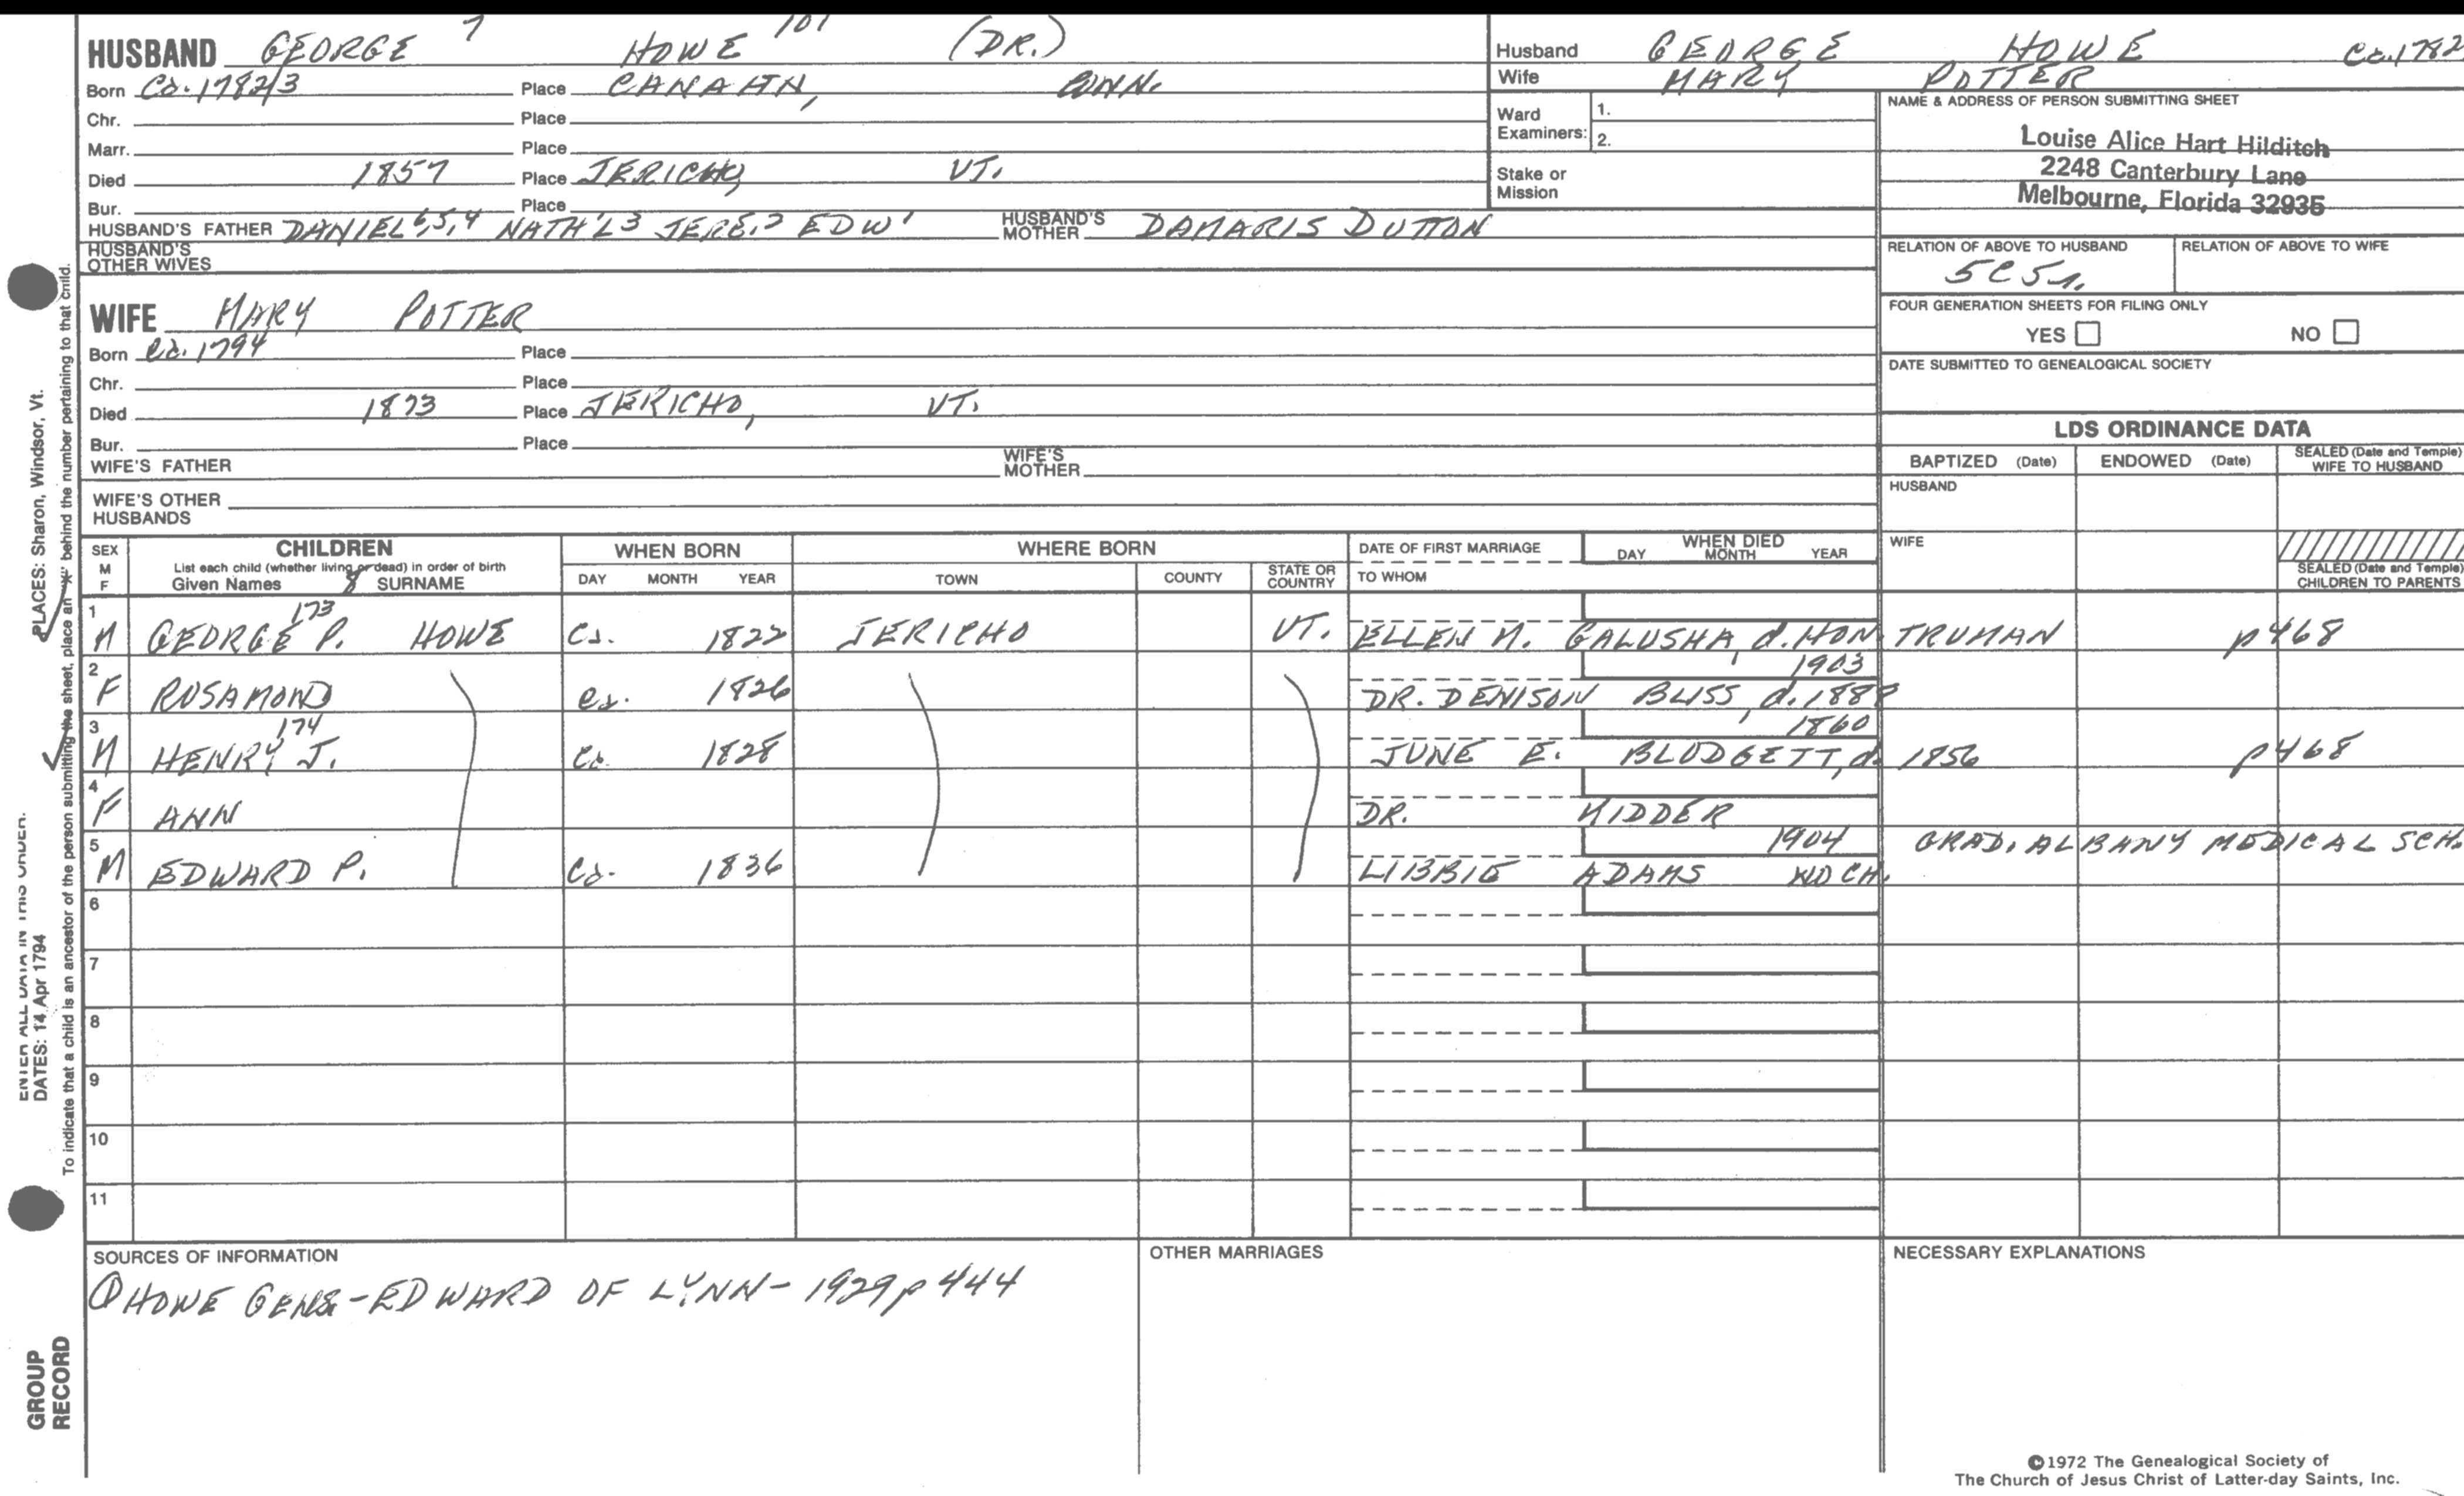 HUSBAND GEORGE 7 HOWE 101 (DR.)
Born Ca. 1782/3 Place CANAAN, CONN.
Chr. Place
Marr. Place
Died 1857 Place JERICHO, VT.
Bur. Place
HUSBAND'S FATHER DANIEL 6,5,4 NATH'L 3 JERE. 2 EDW 1 HUSBAND'S MOTHER DAMARIS DUTTON
HUSBAND'S OTHER WIVES
WIFE MARY POTTER
Born Ca. 1794 Place
Chr. Place
Died 1873 Place JERICHO, VT.
Bur. Place
WIFE'S FATHER WIFE'S MOTHER
WIFE'S OTHER HUSBANDS
Husband GEORGE HOWE Ca. 1782
Wife MARY POTTER
Ward Examiners: 1.
2.
Stake or Mission
NAME & ADDRESS OF PERSON SUBMITTING SHEET
Louise Alice Hart Hilditch
2248 Canterbury Lane
Melbourne, Florida 32935
RELATION OF ABOVE TO HUSBAND RELATION OF ABOVE TO WIFE
5C5r.
FOUR GENERATION SHEETS FOR FILING ONLY
YES NO
DATE SUBMITTED TO GENEALOGICAL SOCIETY
LDS ORDINANCE DATA
BAPTIZED (Date) ENDOWED (Date) SEALED (Date and Temple) WIFE TO HUSBAND
HUSBAND
WIFE
SEALED (Date and Temple) CHILDREN TO PARENTS
SEX M F CHILDREN WHEN BORN WHERE BORN DATE OF FIRST MARRIAGE WHEN DIED
List each child (whether living or dead) in order of birth
Given Names 8 SURNAME DAY MONTH YEAR TOWN COUNTY STATE OR COUNTRY TO WHOM DAY MONTH YEAR
1 173
M GEORGE P. HOWE Ca. 1822 JERICHO VT. ELLEN M. GALUSHA, d. HON. TRUMAN p468
2 1903
F ROSAMOND Ca. 1826 DR. DENISON BLISS, d. 1888
3 174 1860
M HENRY J. Ca. 1828 JUNE E. BLODGETT, d. 1856 p468
4
F ANN DR. KIDDER
5 1904 GRAD. ALBANY MEDICAL SCH.
M EDWARD P. Ca. 1836 LIBBIE ADAMS NO CH.
6
7
8
9
10
11
SOURCES OF INFORMATION
① HOWE GENS - EDWARD OF LYNN - 1929 p 444
OTHER MARRIAGES
NECESSARY EXPLANATIONS
©1972 The Genealogical Society of
The Church of Jesus Christ of Latter-day Saints, Inc.
ENTER ALL DATA IN THIS ORDER:
DATES: 14 Apr 1794
PLACES: Sharon, Windsor, Vt.
To indicate that a child is an ancestor of the person submitting the sheet, place an "X" behind the number pertaining to that child.
GROUP
RECORD